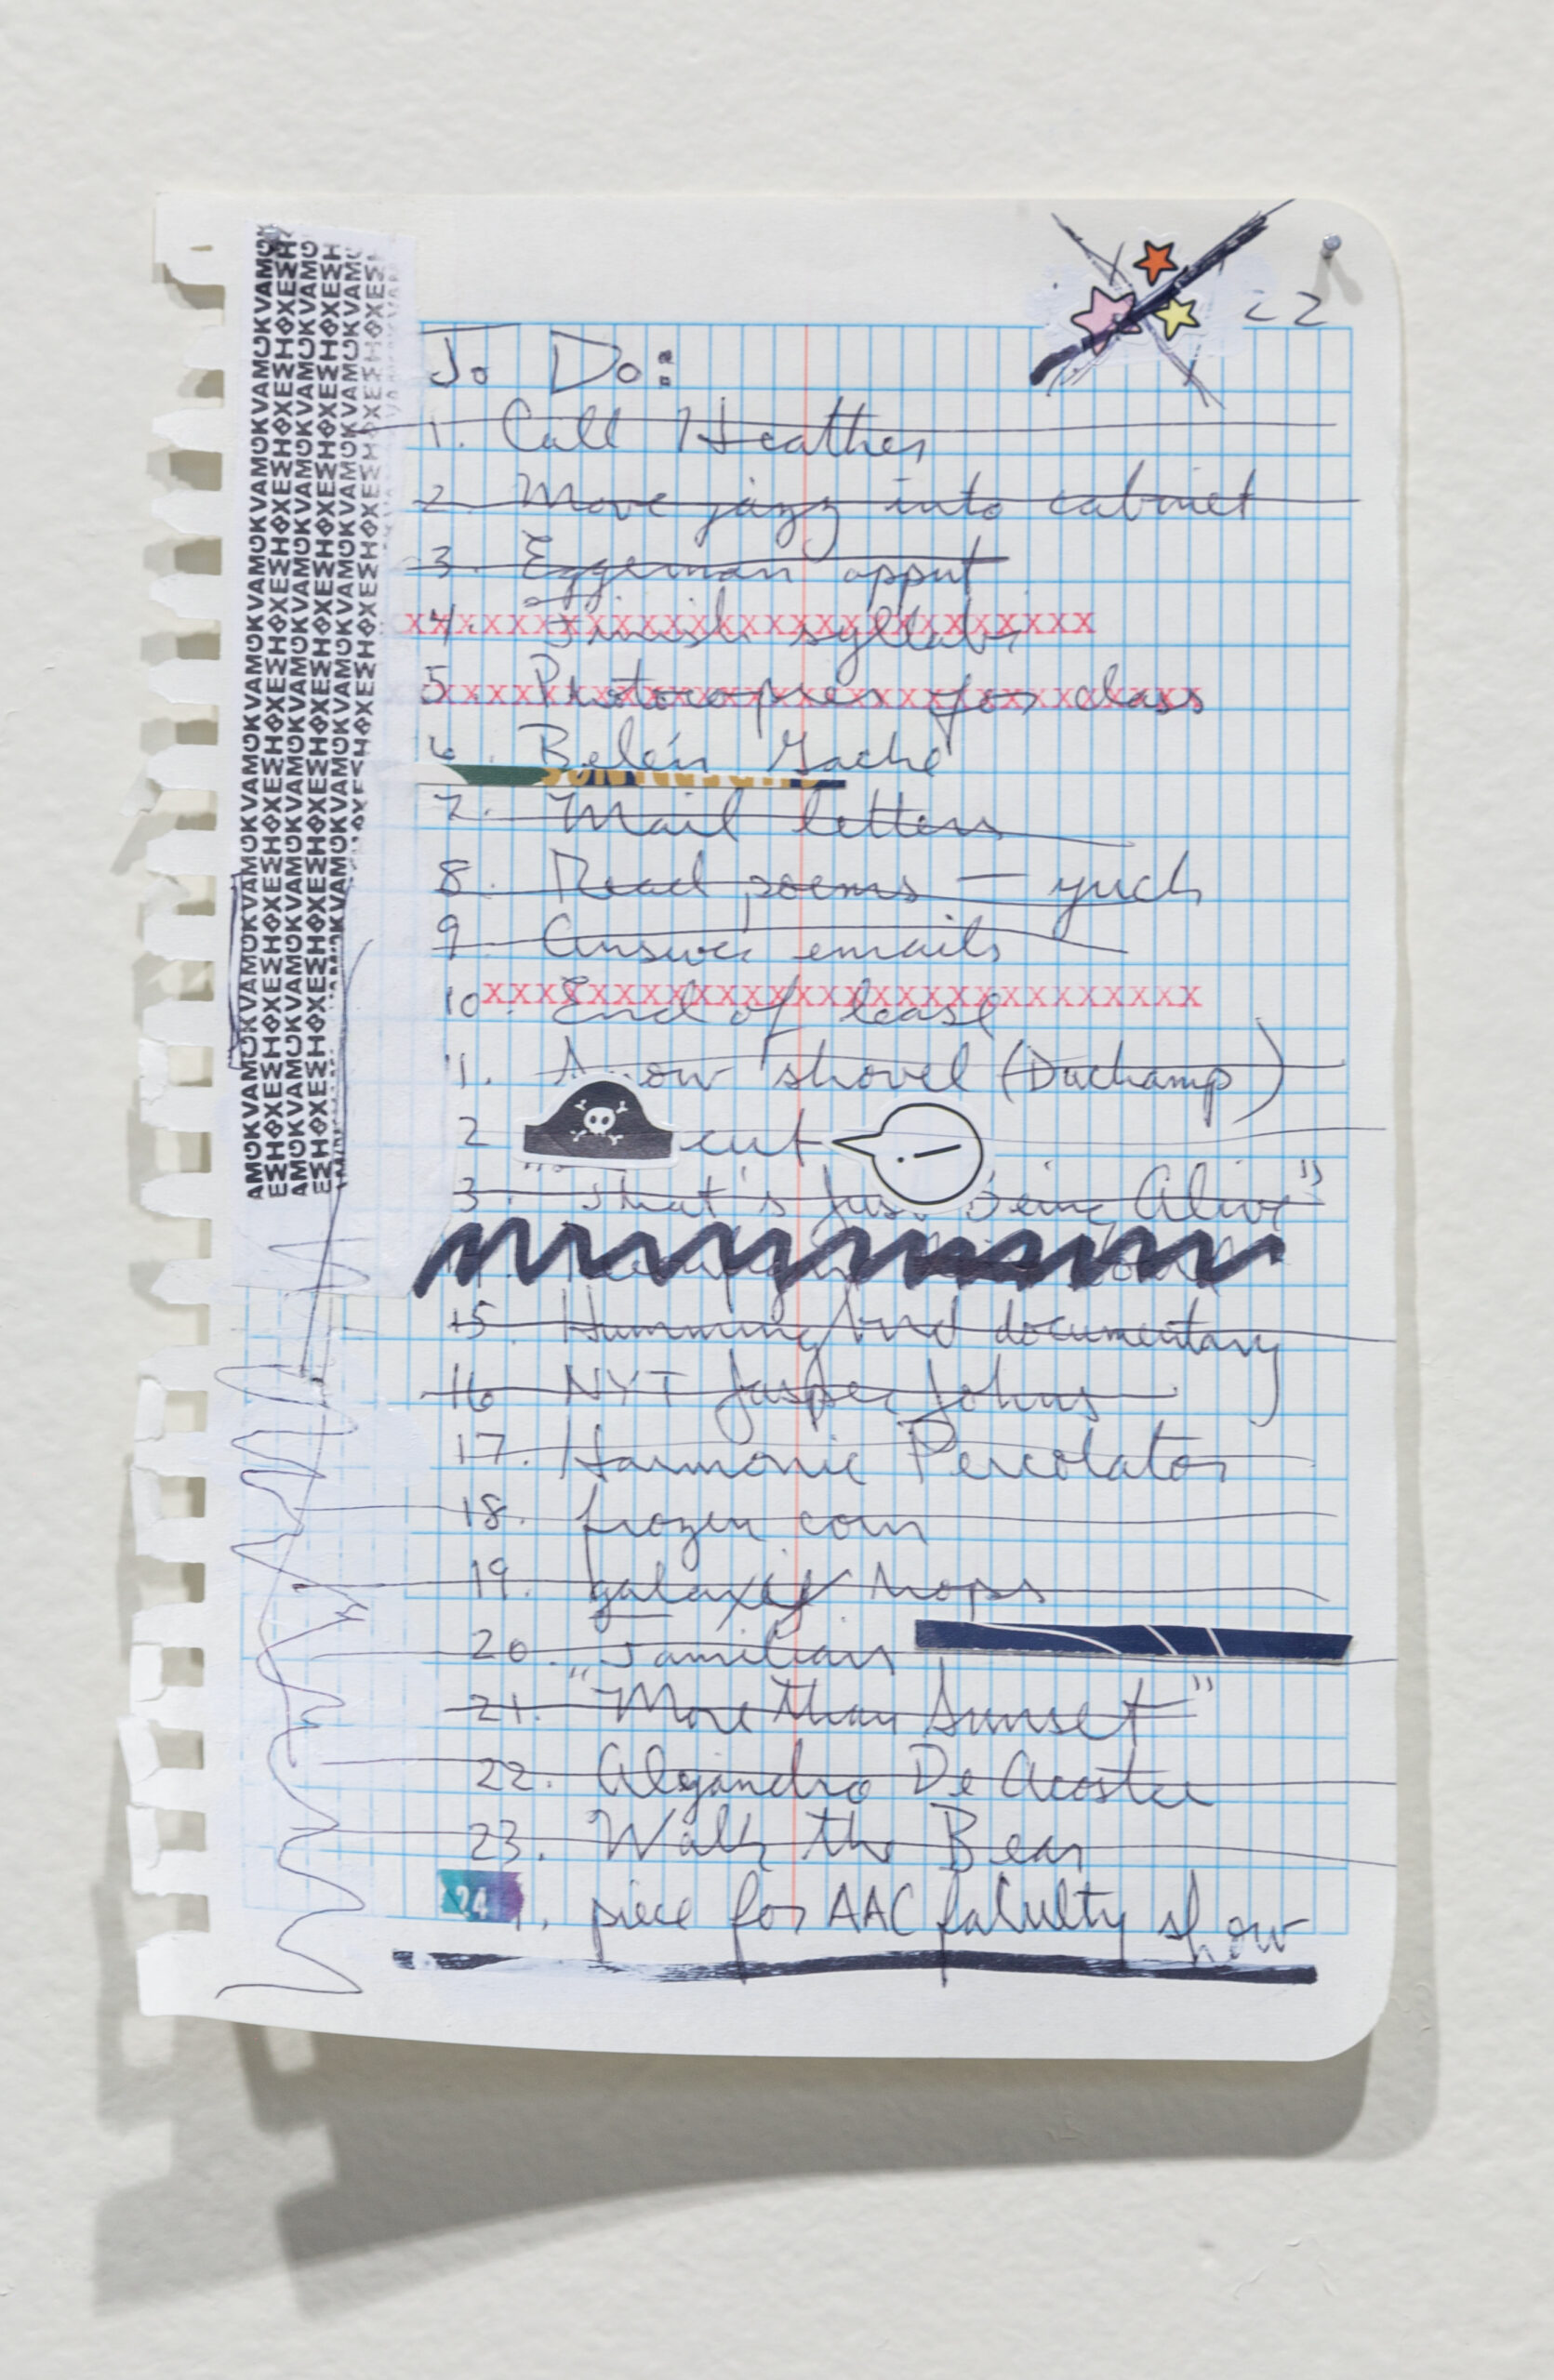 22
To Do:
1. Call Heather
2. Move jazz into cabinet
3. Eggeman appnt
4. Finish syllabi
5. Photocopies for class
6. Belén Gache
7. Mail letters
8. Read poems — yuck
9. Answer emails
10. End of lease
11. Snow shovel (Duchamp)
2 cut
3. "That's Just Being Alive"
15. Hummingbird documentary
16 NYT Jasper Johns
17. Harmonic Percolator
18. frozen corn
19. galaxy hops
20. familiar
21. "More than Sunset"
22. Alejandro De Acosta
23. Walk the Bear
24. piece for AAC faculty show